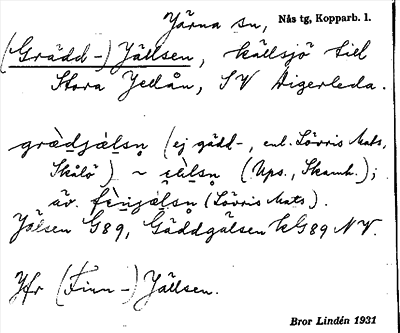 Järna sn, Nås tg, Kopparb. l.
(Grädd-) Jällsen, källsjö till
Stora Jellån, SV Digerleda.
grädjälsn (ej gädd-, enl. Lövris Mats,
Skålö) ~ jälsn (Ups., Skamh.);
äv. fènjälsn (Lövris Mats).
Jälsen G89, Gäddgälsen kG89 NV.
Jfr (Finn-) Jällsen.
Bror Lindén 1931